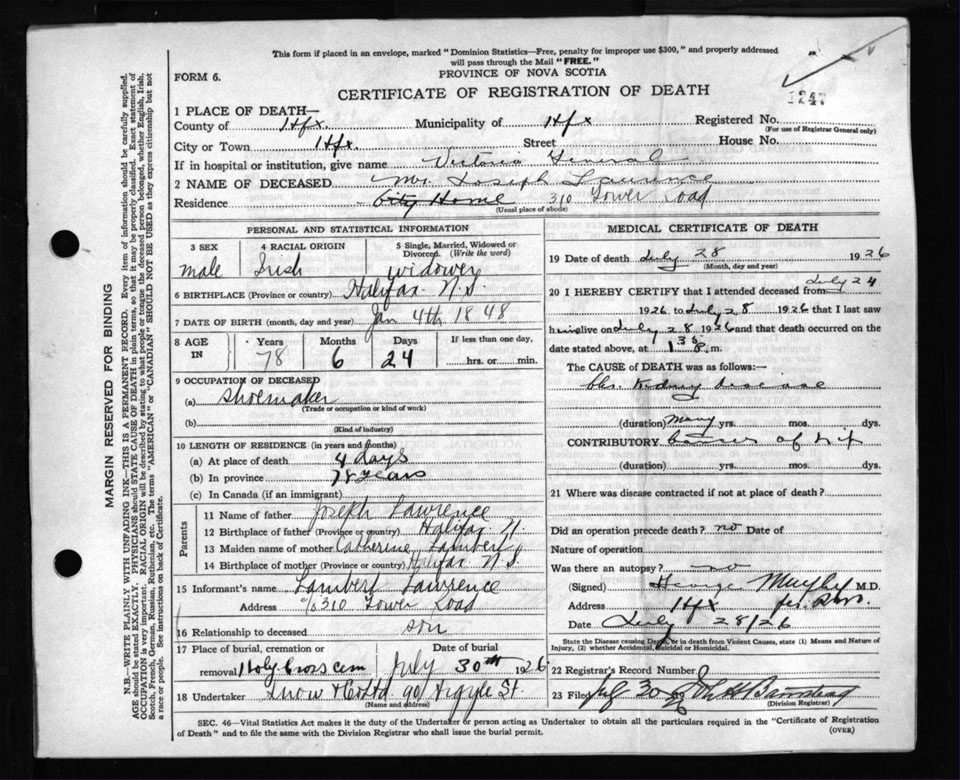 This form if placed in an envelope, marked "Dominion Statistics—Free, penalty for improper use $300," and properly addressed
will pass through the Mail "FREE."
FORM 6.
PROVINCE OF NOVA SCOTIA
CERTIFICATE OF REGISTRATION OF DEATH
1247
1 PLACE OF DEATH—
County of Hfx. Municipality of Hfx Registered No.
(For use of Registrar General only)
City or Town Hfx. Street House No.
If in hospital or institution, give name Victoria General
2 NAME OF DECEASED Mr. Joseph Laurence
Residence City Home 310 Tower Road
(Usual place of abode)
PERSONAL AND STATISTICAL INFORMATION
3 SEX 4 RACIAL ORIGIN 5 Single, Married, Widowed or Divorced. (Write the word)
male Irish widower
6 BIRTHPLACE (Province or country) Halifax N.S.
7 DATE OF BIRTH (month, day and year) Jan 4th 1848
8 AGE IN Years Months Days If less than one day,
78 6 24 hrs. or min.
9 OCCUPATION OF DECEASED
(a) Shoemaker
(Trade or occupation or kind of work)
(b)
(Kind of industry)
10 LENGTH OF RESIDENCE (in years and months)
(a) At place of death 4 days
(b) In province 78 years
(c) In Canada (if an immigrant)
Parents
11 Name of father Joseph Lawrence
12 Birthplace of father (Province or country) Halifax N.
13 Maiden name of mother Catherine Lambert
14 Birthplace of mother (Province or country) Halifax N S
15 Informant's name Lambert Lawrence
Address c/o 310 Tower Road
16 Relationship to deceased son
17 Place of burial, cremation or removal Date of burial
Holy Cross cem July 30th 1926
18 Undertaker Snow & Co Ltd 90 Argyle St.
(Name and address)
MEDICAL CERTIFICATE OF DEATH
19 Date of death July 28 1926
(Month, day and year)
20 I HEREBY CERTIFY that I attended deceased from July 24
1926 to July 28 1926 that I last saw
him alive on July 28 1926 and that death occurred on the
date stated above, at 1 30 p.m.
The CAUSE of DEATH was as follows:—
Chr. Kidney disease
(duration) many yrs. mos. dys.
CONTRIBUTORY Cancer of lip
(duration) yrs. mos. dys.
21 Where was disease contracted if not at place of death?
Did an operation precede death? no Date of
Nature of operation
Was there an autopsy? no
(Signed) George Murphy M.D.
Address Hfx
Date July 28/26
State the Disease causing Death, or in death from Violent Causes, state (1) Means and Nature of
Injury, (2) whether Accidental, Suicidal or Homicidal.
22 Registrar's Record Number
23 Filed July 30
(Division Registrar)
SEC. 46—Vital Statistics Act makes it the duty of the Undertaker or person acting as Undertaker to obtain all the particulars required in the "Certificate of Registration
of Death" and to file the same with the Division Registrar who shall issue the burial permit.
(OVER)
MARGIN RESERVED FOR BINDING
N.B.—WRITE PLAINLY WITH UNFADING INK—THIS IS A PERMANENT RECORD. Every item of information should be carefully supplied.
AGE should be stated EXACTLY. PHYSICIANS should STATE CAUSE OF DEATH in plain terms, so that it may be properly classified. Exact statement of
OCCUPATION is very important. RACIAL ORIGIN will be described by stating to what people or tongue the deceased person belonged, whether English, Irish,
Scotch, French, German, Russian, Ruthenian, etc. The terms "AMERICAN" or "CANADIAN" SHOULD NOT BE USED as they express citizenship but not
a race or people. See instructions on back of Certificate.